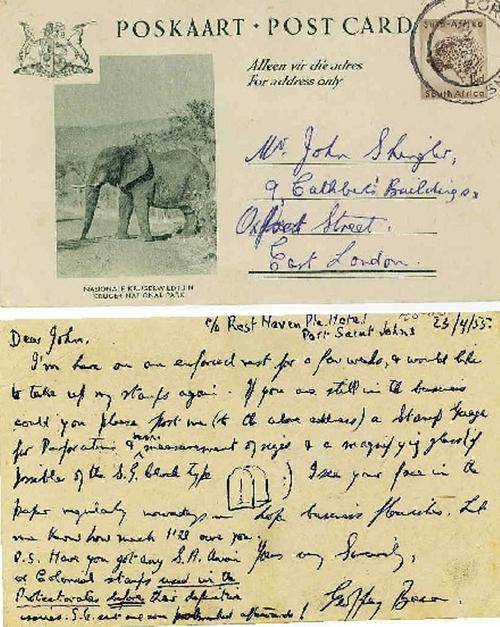 POSKAART · POST CARD
Alleen vir die adres
For address only
South Africa
South Africa
Mr. John Shingler,
9 Cuthbert's Buildings,
Oxford Street.
East London.
NASIONALE KRUGERWILDTUIN
KRUGER NATIONAL PARK
c/o Rest Haven Pte Hotel
Port Saint Johns 23/4/55.
Dear John,
I'm here on an enforced rest for a few weeks, & would like
to take up my stamps again. If you are still in the business
could you please post me (to the above address) a Stamp Gauge
for Perforation & mm. measurement of sizes & a magnifying glass (if
possible of the S.G. block type ) I see your face in the
paper regularly nowadays hope business flourishes. Let
me know how much I'll owe you.
P.S. Have you got any S.A. Yours very Sincerely,
or Colonial stamps used in the
Protectorates before their definitive
issues. S.G. afterwards!
Geoffrey